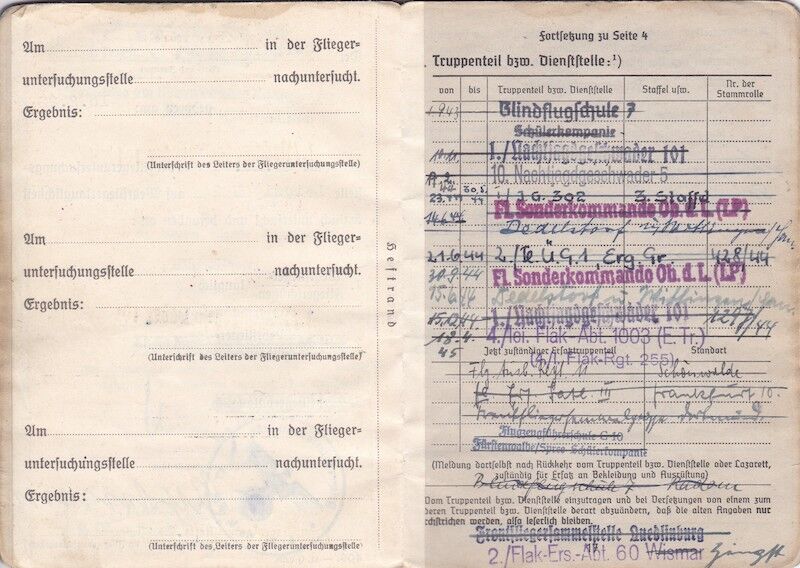 Am in der Flieger-
untersuchungsstelle nachuntersucht.
Ergebnis:
(Unterschrift des Leiters der Fliegeruntersuchungsstelle)
Am in der Flieger-
untersuchungsstelle nachuntersucht.
Ergebnis:
(Unterschrift des Leiters der Fliegeruntersuchungsstelle)
Am in der Flieger-
untersuchungsstelle nachuntersucht.
Ergebnis:
(Unterschrift des Leiters der Fliegeruntersuchungsstelle)
Heftrand
Fortsetzung zu Seite 4
Truppenteil bzw. Dienststelle:¹)
von bis Truppenteil bzw. Dienststelle Staffel usw. Nr. der Stammrolle
1943 Blindflugschule 7
Schülerkompanie
1./Nachtjagdgeschwader 101
10. Nachtjagdgeschwader 5
30.5.44 J.G. 302 3. Staffel
14.6.44 Fl. Sonderkommando Ob. d. L. (LP)
Dedelstorf
21.6.44 2./ Erg. Gr. 428/44
30.9.44 Fl. Sonderkommando Ob. d. L. (LP)
Dedelstorf
15.12.44 1./Nachtjagdgeschwader 101
18.4.45 4./lei. Flak-Abt. 1003 (E.Tr.)
Jetzt zuständiger Ersatztruppenteil Standort
(4./l. Flak-Rgt. 255)
Schönwalde
Frankfurt
Dortmund
Flugzeugführerschule C 10
Fürstenwalde/Spree Schülerkompanie
(Meldung dortselbst nach Rückkehr vom Truppenteil bzw. Dienststelle oder Lazarett,
zuständig für Ersatz an Bekleidung und Ausrüstung)
Blindflugschule 7 Radom
Vom Truppenteil bzw. Dienststelle einzutragen und bei Versetzungen von einem zum
deren Truppenteil bzw. Dienststelle derart abzuändern, daß die alten Angaben nur
rchstrichen werden, also leserlich bleiben.
Frontfliegersammelstelle Quedlinburg
2./Flak-Ers.-Abt. 60 Wismar